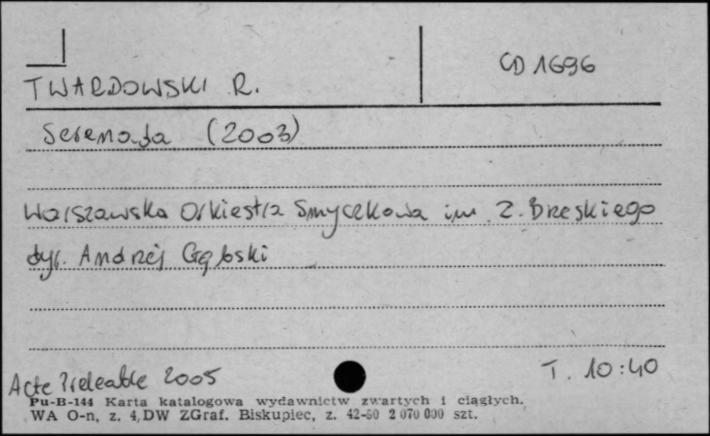 CD 1696
TWARDOWSKI R.
Serenada (2003)
Warszawska Orkiestra Smyczkowa im. Z. Brzeskiego
dyr. Andrzej Gębski
Acte Préalable 2005
T. 10:40
Pu-B-144 Karta katalogowa wydawnictw zwartych i ciągłych.
WA O-n, z. 4, DW ZGraf. Biskupiec, z. 42-80 2 070 000 szt.